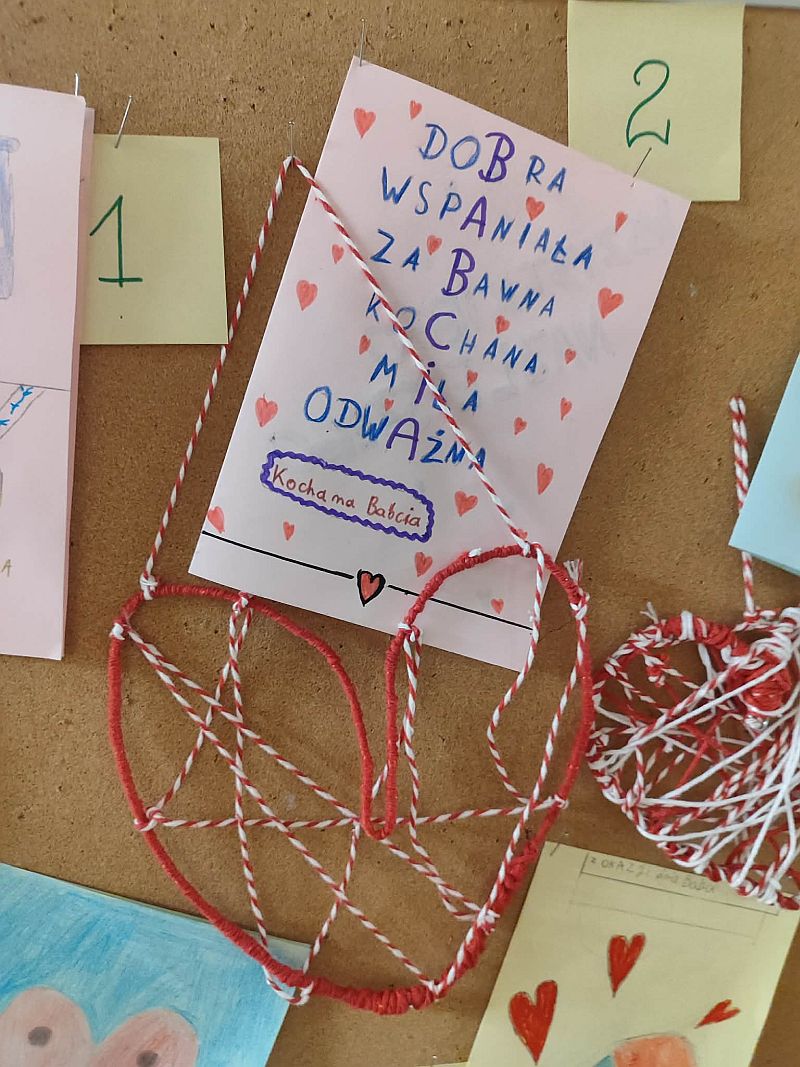 1
2
DOBRA
WSPANIAŁA
ZABAWNA
KOCHANA
MiŁA
ODWAŻNA
Kochana Babcia
A
Z OKAZJI